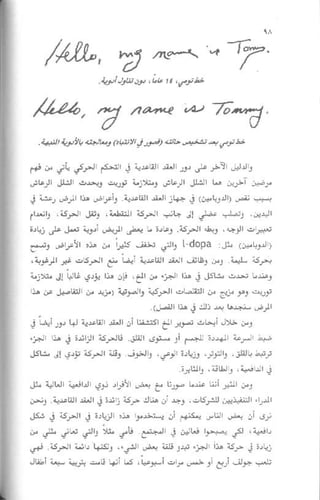 ٩٨
Hello, my name is Tommy.
خط تومي، ١٤ عاماً، دون تناول أدوية.
Hello, my name is Tommy.
خط تومي بعد تشخيص حالته (قصور في الانتباه) ومعالجته بالأدوية المنبهة.
والدليل الآخر على دور العقد القاعدية في التحكم الحركي يأتي من فهم
مرضين آخرين هما الشلل الرعاش ومتلازمة توريت ويحدث الشلل الرعاش
بسبب نقص (الدوبامين) في جهاز العقد القاعدية. وأعراض هذا المرض رعشة في
اليدين، وتصلب عضلي إلى جانب الحركة المتقطعة، وثقل الحركة، وانعدام
تعبيرات الوجه، وبطء الحركة. وعادة ما يعطى المريض أدوية تعمل على زيادة
(الدوبامين) مثل: l-dopa والتي تخفف كثيراً من هذه الأعراض وتسمح
بحركة سليمة. ومن وظائف العقد القاعدية أيضاً منع الحركات غير المرغوبة،
وعندما تحدث مشاكل في هذا الجزء من المخ، فإن هذا يؤدي غالباً إلى متلازمة
توريت وهو مزيج من التقلصات الحركية والصوتية (مزيد من التفاصيل عن هذا
المرض ستجدها بعد ذلك في هذا الفصل).
ومن خلال أبحاث تصوير المخ اكتشفنا أن العقد القاعدية لها دور أيضاً في
ضبط السرعة المحددة للجسم أو مستوى القلق. فالحركة الزائدة في هذا الجزء
ترتبط بالقلق، والتوتر، وزيادة الوعي، والخوف. وقلة الحركة تؤدي إلى مشاكل
في الدافعية، والطاقة، والمثابرة.
ومن المثير أننا عندما صورنا مخ بعض الأفراد ذوي الدافعية العالية مثل
المدراء التنفيذيين للشركات، وجد أن هناك حركة زائدة في العقد القاعدية. ونحن
نرى أن بعض الناس يمكنهم أن يستخدموا هذه الزيادة في الحركة في شكل
دافعية، لكي يصبحوا فعالين في المجتمع. فأمي مثلاً والتي تعاني مثلي من
زيادة في حركة هذا الجزء تبدو قلقة بعض الشيء، ولكنها دائمة الحركة. فهي
تلعب جولف أربع أو خمس مرات أسبوعياً، كما أنها قامت بتربية سبعة أطفال